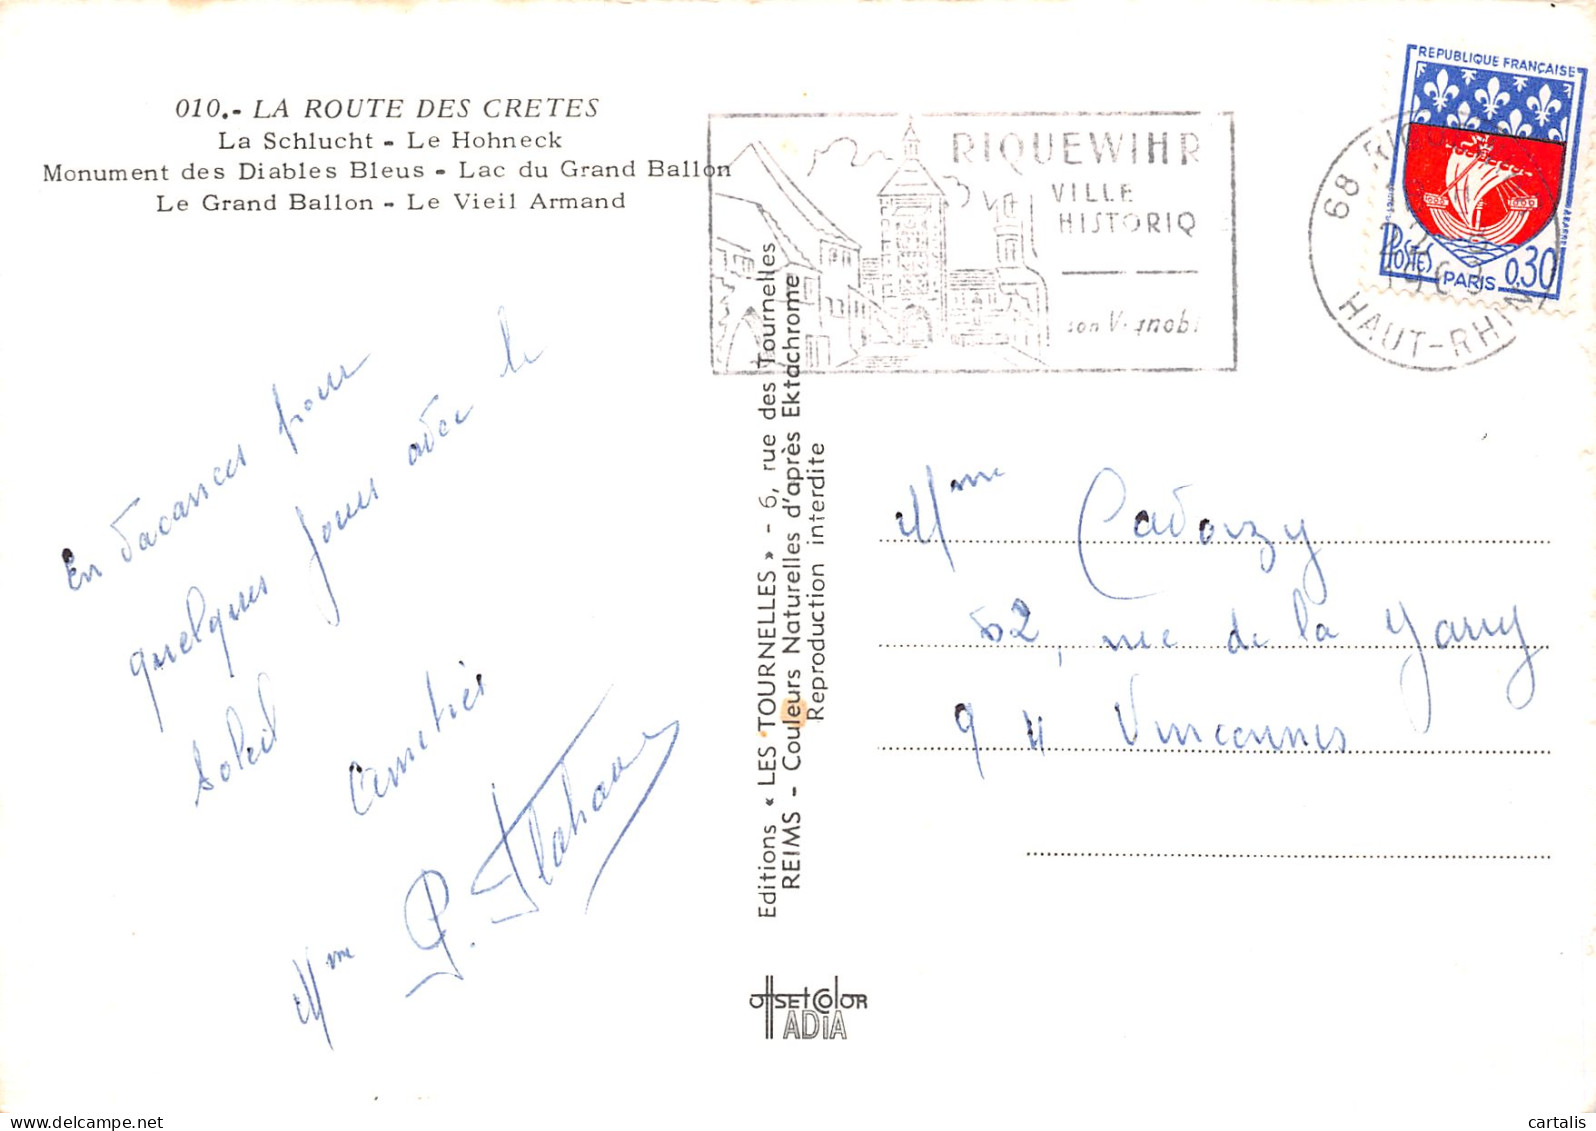 010.- LA ROUTE DES CRETES
La Schlucht - Le Hohneck
Monument des Diables Bleus - Lac du Grand Ballon
Le Grand Ballon - Le Vieil Armand
RIQUEWIHR
VILLE
HISTORIQ
son Vignobl
68
HAUT-RHIN
REPUBLIQUE FRANÇAISE
POSTES
PARIS 0,30
En vacances pour
quelques jours avec le
soleil
Amitiés
Mme P.
Editions « LES TOURNELLES » - 6, rue des Tournelles
REIMS - Couleurs Naturelles d'après Ektachrome
Reproduction interdite
Mme
52, rue de la Jarry
94 Vincennes
OFFSET COLOR
IADIA
delcampe.net
cartalis